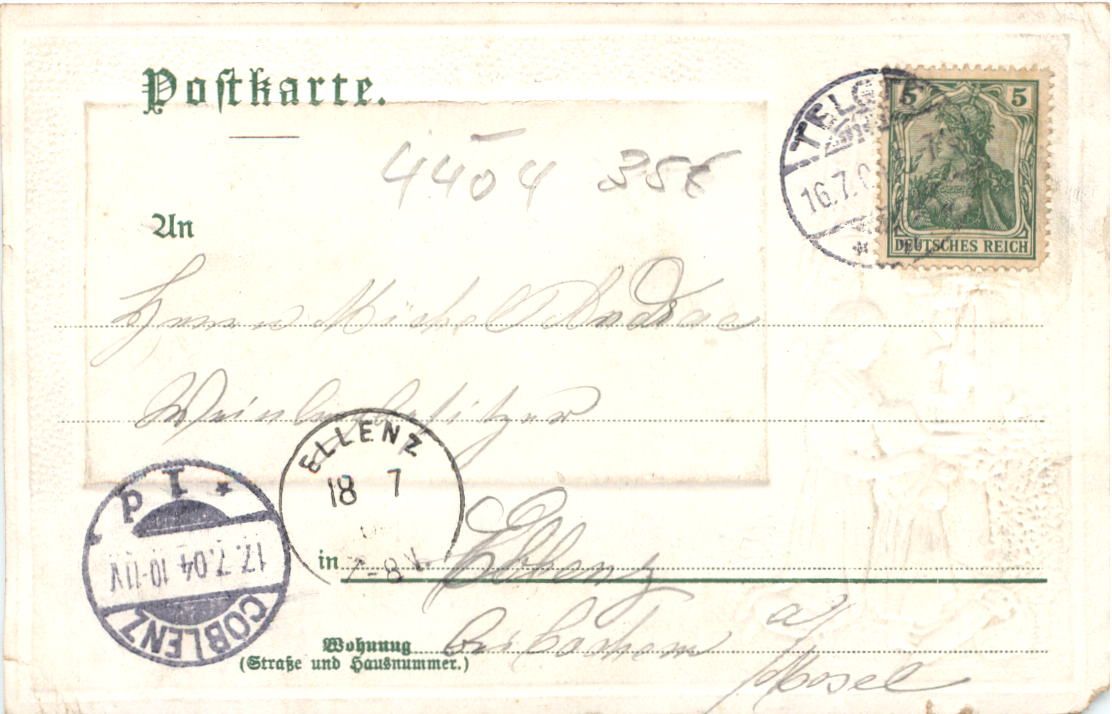 Postkarte.
4404 35€
5 5
DEUTSCHES REICH
TELGTE
16.7.0
An
Herrn Michel Andrae
Weinbergbesitzer
ELLENZ
18 7
7-8N.
p I *
17.7.04 10-11V
COBLENZ
in Ellenz
Wohnung bei Cochem a/
(Straße und Hausnummer.)
Mosel